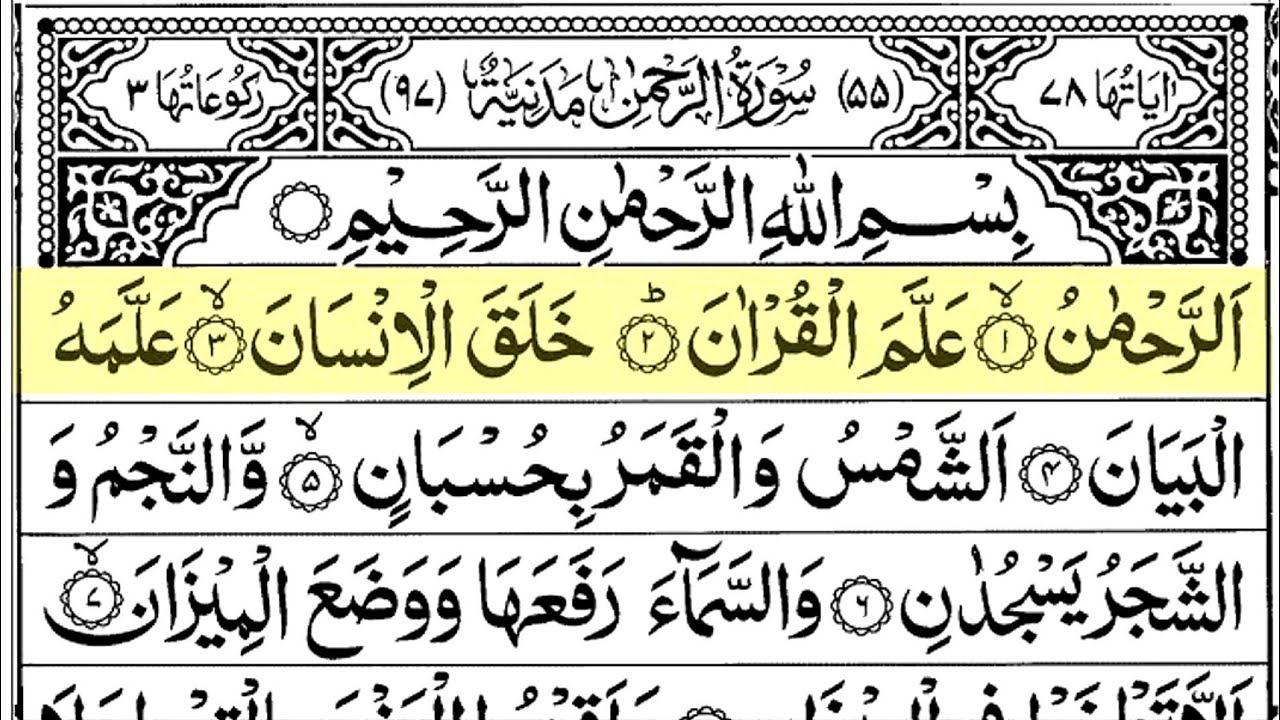 اٰيَاتُهَا ۷۸ (۵۵) سُوْرَةُ الرَّحْمٰنِ مَدَنِيَّةٌ (۹۷) رُكُوْعَاتُهَا ۳
بِسْمِ اللّٰهِ الرَّحْمٰنِ الرَّحِيْمِ
اَلرَّحْمٰنُ ۙ‏﴿۱﴾ عَلَّمَ الْقُرْاٰنَ ؕ‏﴿۲﴾ خَلَقَ الْاِنْسَانَ ۙ‏﴿۳﴾ عَلَّمَهُ
الْبَيَانَ ﴿۴﴾ اَلشَّمْسُ وَالْقَمَرُ بِحُسْبَانٍ ۙ‏﴿۵﴾ وَّالنَّجْمُ وَ
الشَّجَرُ يَسْجُدٰنِ ﴿۶﴾ وَالسَّمَآءَ رَفَعَهَا وَوَضَعَ الْمِيْزَانَ ۙ‏﴿۷﴾